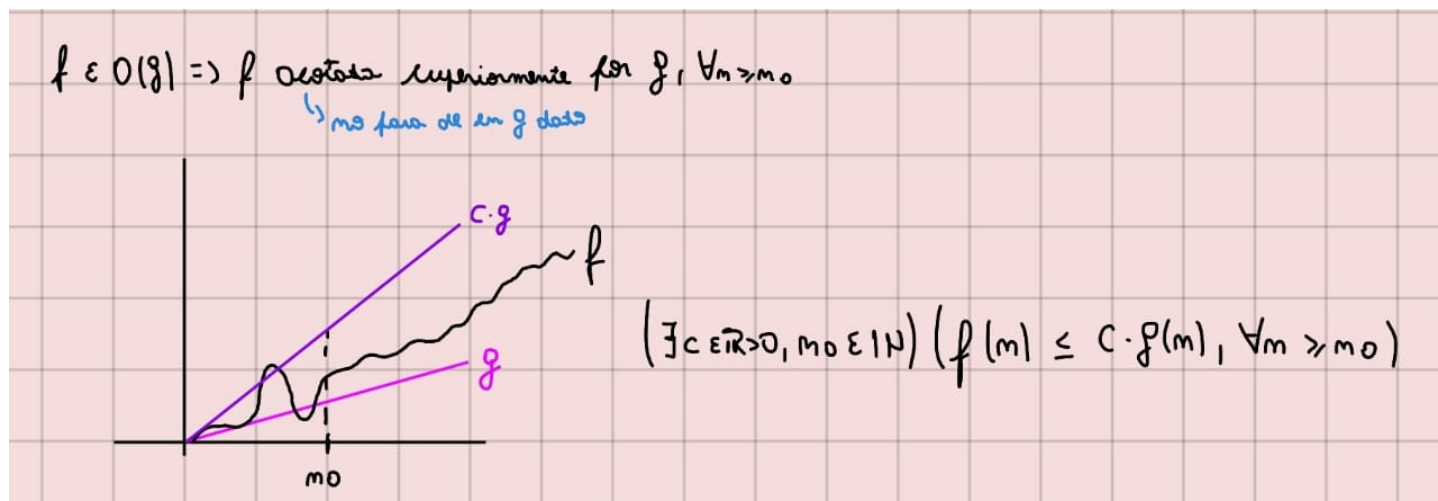 f ∈ O(g) => f acotada superiormente por g, ∀n ≥ n0
↳ no pasa de un g dado
c·g
f
(∃c ∈ ℝ>0, n0 ∈ ℕ) (f(n) ≤ c·g(n), ∀n ≥ n0)
g
n0